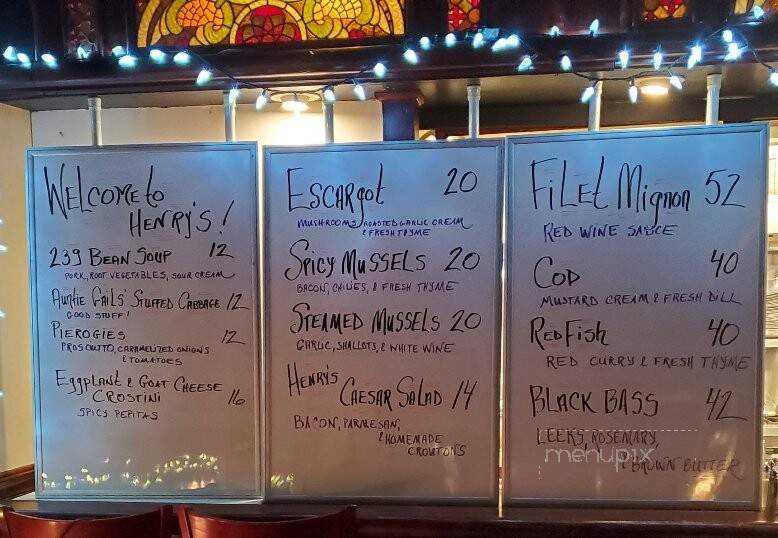 WELCOME to
HENRY'S!
239 BEAN SOUP 12
PORK, ROOT VEGETABLES, SOUR CREAM
AUNTIE GAILS' STUFFED CABBAGE 12
GOOD STUFF!
PIEROGIES 12
PROSCUTTO, CARAMELIZED ONIONS
& TOMATOES
EGGPLANT & GOAT CHEESE
CROSTINI 16
SPICY PEPITAS
ESCARGOT 20
MUSHROOMS, ROASTED GARLIC CREAM
& FRESH THYME
SPICY MUSSELS 20
BACON, CHILIES, & FRESH THYME
STEAMED MUSSELS 20
GARLIC, SHALLOTS, & WHITE WINE
HENRY'S
CAESAR SALAD 14
BACON, PARMESAN,
& HOMEMADE
CROUTONS
FILET Mignon 52
RED WINE SAUCE
COD 40
MUSTARD CREAM & FRESH DILL
RED FISH 40
RED CURRY & FRESH THYME
BLACK BASS 42
LEEKS, ROSEMARY,
& BROWN BUTTER
menupix